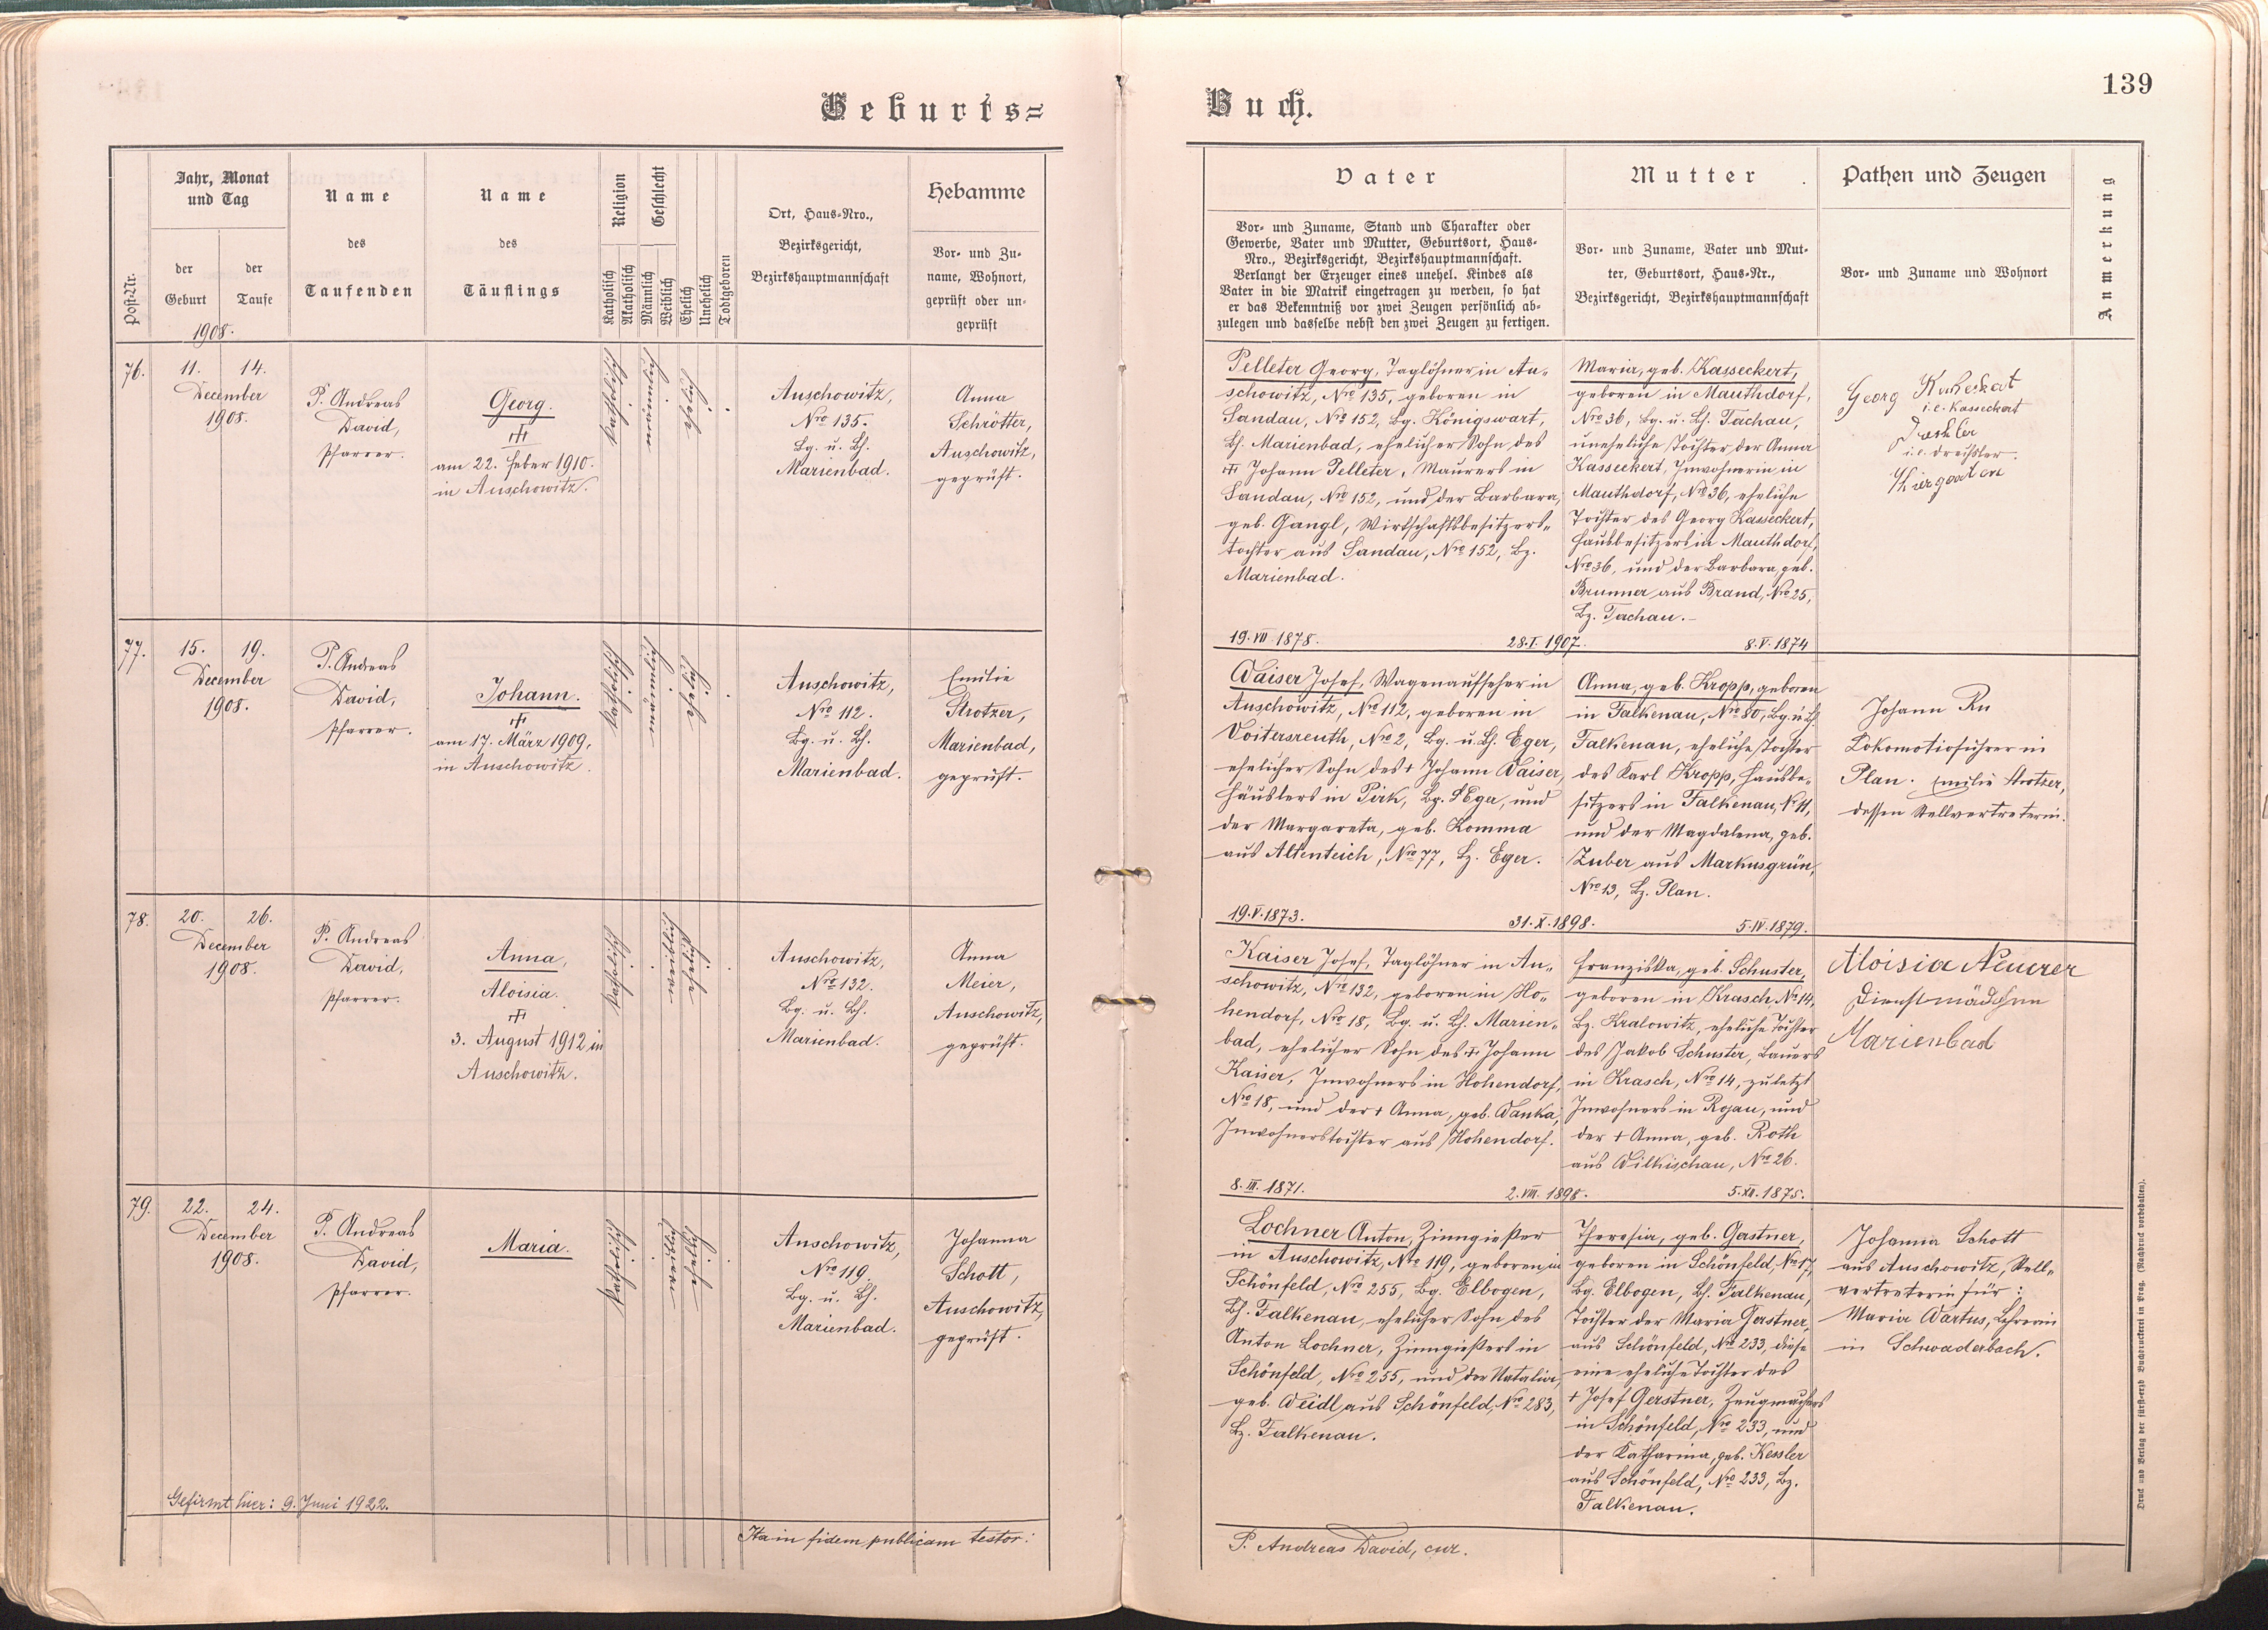 139
Geburts=
Buch.
Post-Nr.
Jahr, Monat
und Tag
der
Geburt
der
Taufe
1908.
Name
des
Taufenden
Name
des
Täuflings
Religion
Katholisch
Akatholisch
Geschlecht
Männlich
Weiblich
Ehelich
Unehelich
Todtgeboren
Ort, Haus-Nro.,
Bezirksgericht,
Bezirkshauptmannschaft
Hebamme
Vor- und Zu-
name, Wohnort,
geprüft oder un-
geprüft
Vater
Vor- und Zuname, Stand und Charakter oder
Gewerbe, Vater und Mutter, Geburtsort, Haus-
Nro., Bezirksgericht, Bezirkshauptmannschaft.
Verlangt der Erzeuger eines unehel. Kindes als
Vater in die Matrik eingetragen zu werden, so hat
er das Bekenntniß vor zwei Zeugen persönlich ab-
zulegen und dasselbe nebst den zwei Zeugen zu fertigen.
Mutter
Vor- und Zuname, Vater und Mut-
ter, Geburtsort, Haus-Nr.,
Bezirksgericht, Bezirkshauptmannschaft
Pathen und Zeugen
Vor- und Zuname und Wohnort
Anmerkung
76.
11. 14.
December
1908.
P. Andreas
David,
Pfarrer.
Georg.
am 22. Feber 1910.
in Auschowitz.
katholisch
männlich
ehelich
Auschowitz,
Nro 135.
Bg. u. Bh.
Marienbad.
Anna
Schrötter,
Auschowitz,
geprüft.
Pelleter Georg, Taglöhner in Au-
schowitz, Nro 135, geboren in
Sandau, Nro 152, Bg. Königswart,
Bh. Marienbad, ehelicher Sohn des
Johann Pelleter, Maurers in
Sandau, Nro 152, und der Barbara,
geb. Gangl, Wirtschaftsbesitzers-
tochter aus Sandau, Nro 152, Bz.
Marienbad.
19. VII. 1878. 28. I. 1907. 8. V. 1874
Maria, geb. Kasseckert,
geboren in Mauthdorf,
Nro 36, Bg. u. Bh. Tachau,
uneheliche Tochter der Anna
Kasseckert, Inwohnerin in
Mauthdorf, Nro 36, eheliche
Tochter des Georg Kasseckert,
Hausbesitzers in Mauthdorf,
Nro 36, und der Barbara, geb.
Brunner aus Brand, Nro 25,
Bz. Tachau.
Georg
i. e. Kasseckert
i. e. Dreihsler.
77.
15. 19.
December
1908.
P. Andreas
David,
Pfarrer.
Johann.
am 17. März 1909,
in Auschowitz.
katholisch
männlich
ehelich
Auschowitz,
Nro 112.
Bg. u. Bh.
Marienbad.
Emilie
Strotzer,
Marienbad,
geprüft.
Waiser Josef, Wagenaufseher in
Auschowitz, Nro 112, geboren in
Voitersreuth, Nro 2, Bg. u. Bh. Eger,
ehelicher Sohn des + Johann Waiser,
Häuslers in Pirk, Bg. Eger, und
der Margareta, geb. Komma
aus Altenteich, Nro 77, Bz. Eger.
19. V. 1873. 31. X. 1898. 5. IV. 1879.
Anna, geb. Kropp, geboren
in Falkenau, Nro 80, Bg. u. Bh.
Falkenau, eheliche Tochter
des Karl Kropp, Hausbe-
sitzers in Falkenau, No 11,
und der Magdalena, geb.
Zuber aus Markusgrün,
Nro 13, Bz. Plan.
Johann
Lokomotivführer in
Plan. Emilie Strotzer,
dessen Stellvertreterin.
78.
20. 26.
December
1908.
P. Andreas
David,
Pfarrer.
Anna,
Aloisia.
3. August 1912 in
Auschowitz.
katholisch
weiblich
ehelich
Auschowitz,
Nro 132.
Bg. u. Bh.
Marienbad.
Anna
Meier,
Auschowitz,
geprüft.
Kaiser Josef, Taglöhner in Au-
schowitz, Nro 132, geboren in Ho-
hendorf, Nro 18, Bg. u. Bh. Marien-
bad, ehelicher Sohn des + Johann
Kaiser, Inwohners in Hohendorf,
Nro 18, und der + Anna, geb. Wanka,
Inwohnerstochter aus Hohendorf.
8. III. 1871. 2. VIII. 1898. 5. XII. 1875.
Franziska, geb. Schuster,
geboren in Krasch, No 14,
Bz. Kralowitz, eheliche Tochter
des Jakob Schuster, Bauers
in Krasch, Nro 14, zuletzt
Inwohners in Rojau, und
der + Anna, geb. Roth
aus Wilkischau, Nro 26.
Aloisia Neuerer
Dienstmädchen
Marienbad
79.
22. 24.
December
1908.
P. Andreas
David,
Pfarrer.
Maria.
katholisch
weiblich
ehelich
Auschowitz,
Nro 119.
Bg. u. Bh.
Marienbad.
Johanna
Schott,
Auschowitz,
geprüft.
Lochner Anton, Zinngießer
in Auschowitz, Nro 119, geboren in
Schönfeld, Nro 255, Bg. Elbogen,
Bh. Falkenau, ehelicher Sohn des
Anton Lochner, Zinngießers in
Schönfeld, Nro 255, und der Natalia,
geb. Weidl aus Schönfeld, Nro 283,
Bz. Falkenau.
Theresia, geb. Gerstner,
geboren in Schönfeld, Nro 17,
Bg. Elbogen, Bh. Falkenau,
Tochter der Maria Gerstner,
aus Schönfeld, Nro 233, diese
eine eheliche Tochter des
+ Josef Gerstner, Zeugmachers
in Schönfeld, Nro 233, und
der Katharina, geb. Kessler
aus Schönfeld, Nro 233, Bz.
Falkenau.
Johanna Schott
aus Auschowitz, Stell-
vertreterin für:
Maria Wartus, Lehrerin
in Schwaderbach.
Gefirmt hier: 9. Juni 1922.
Ita in fidem publicam testor:
P. Andreas David, cur.
Druck und Verlag der fürst-erzb Buchdruckerei in Prag. (Nachdruck vorbehalten).